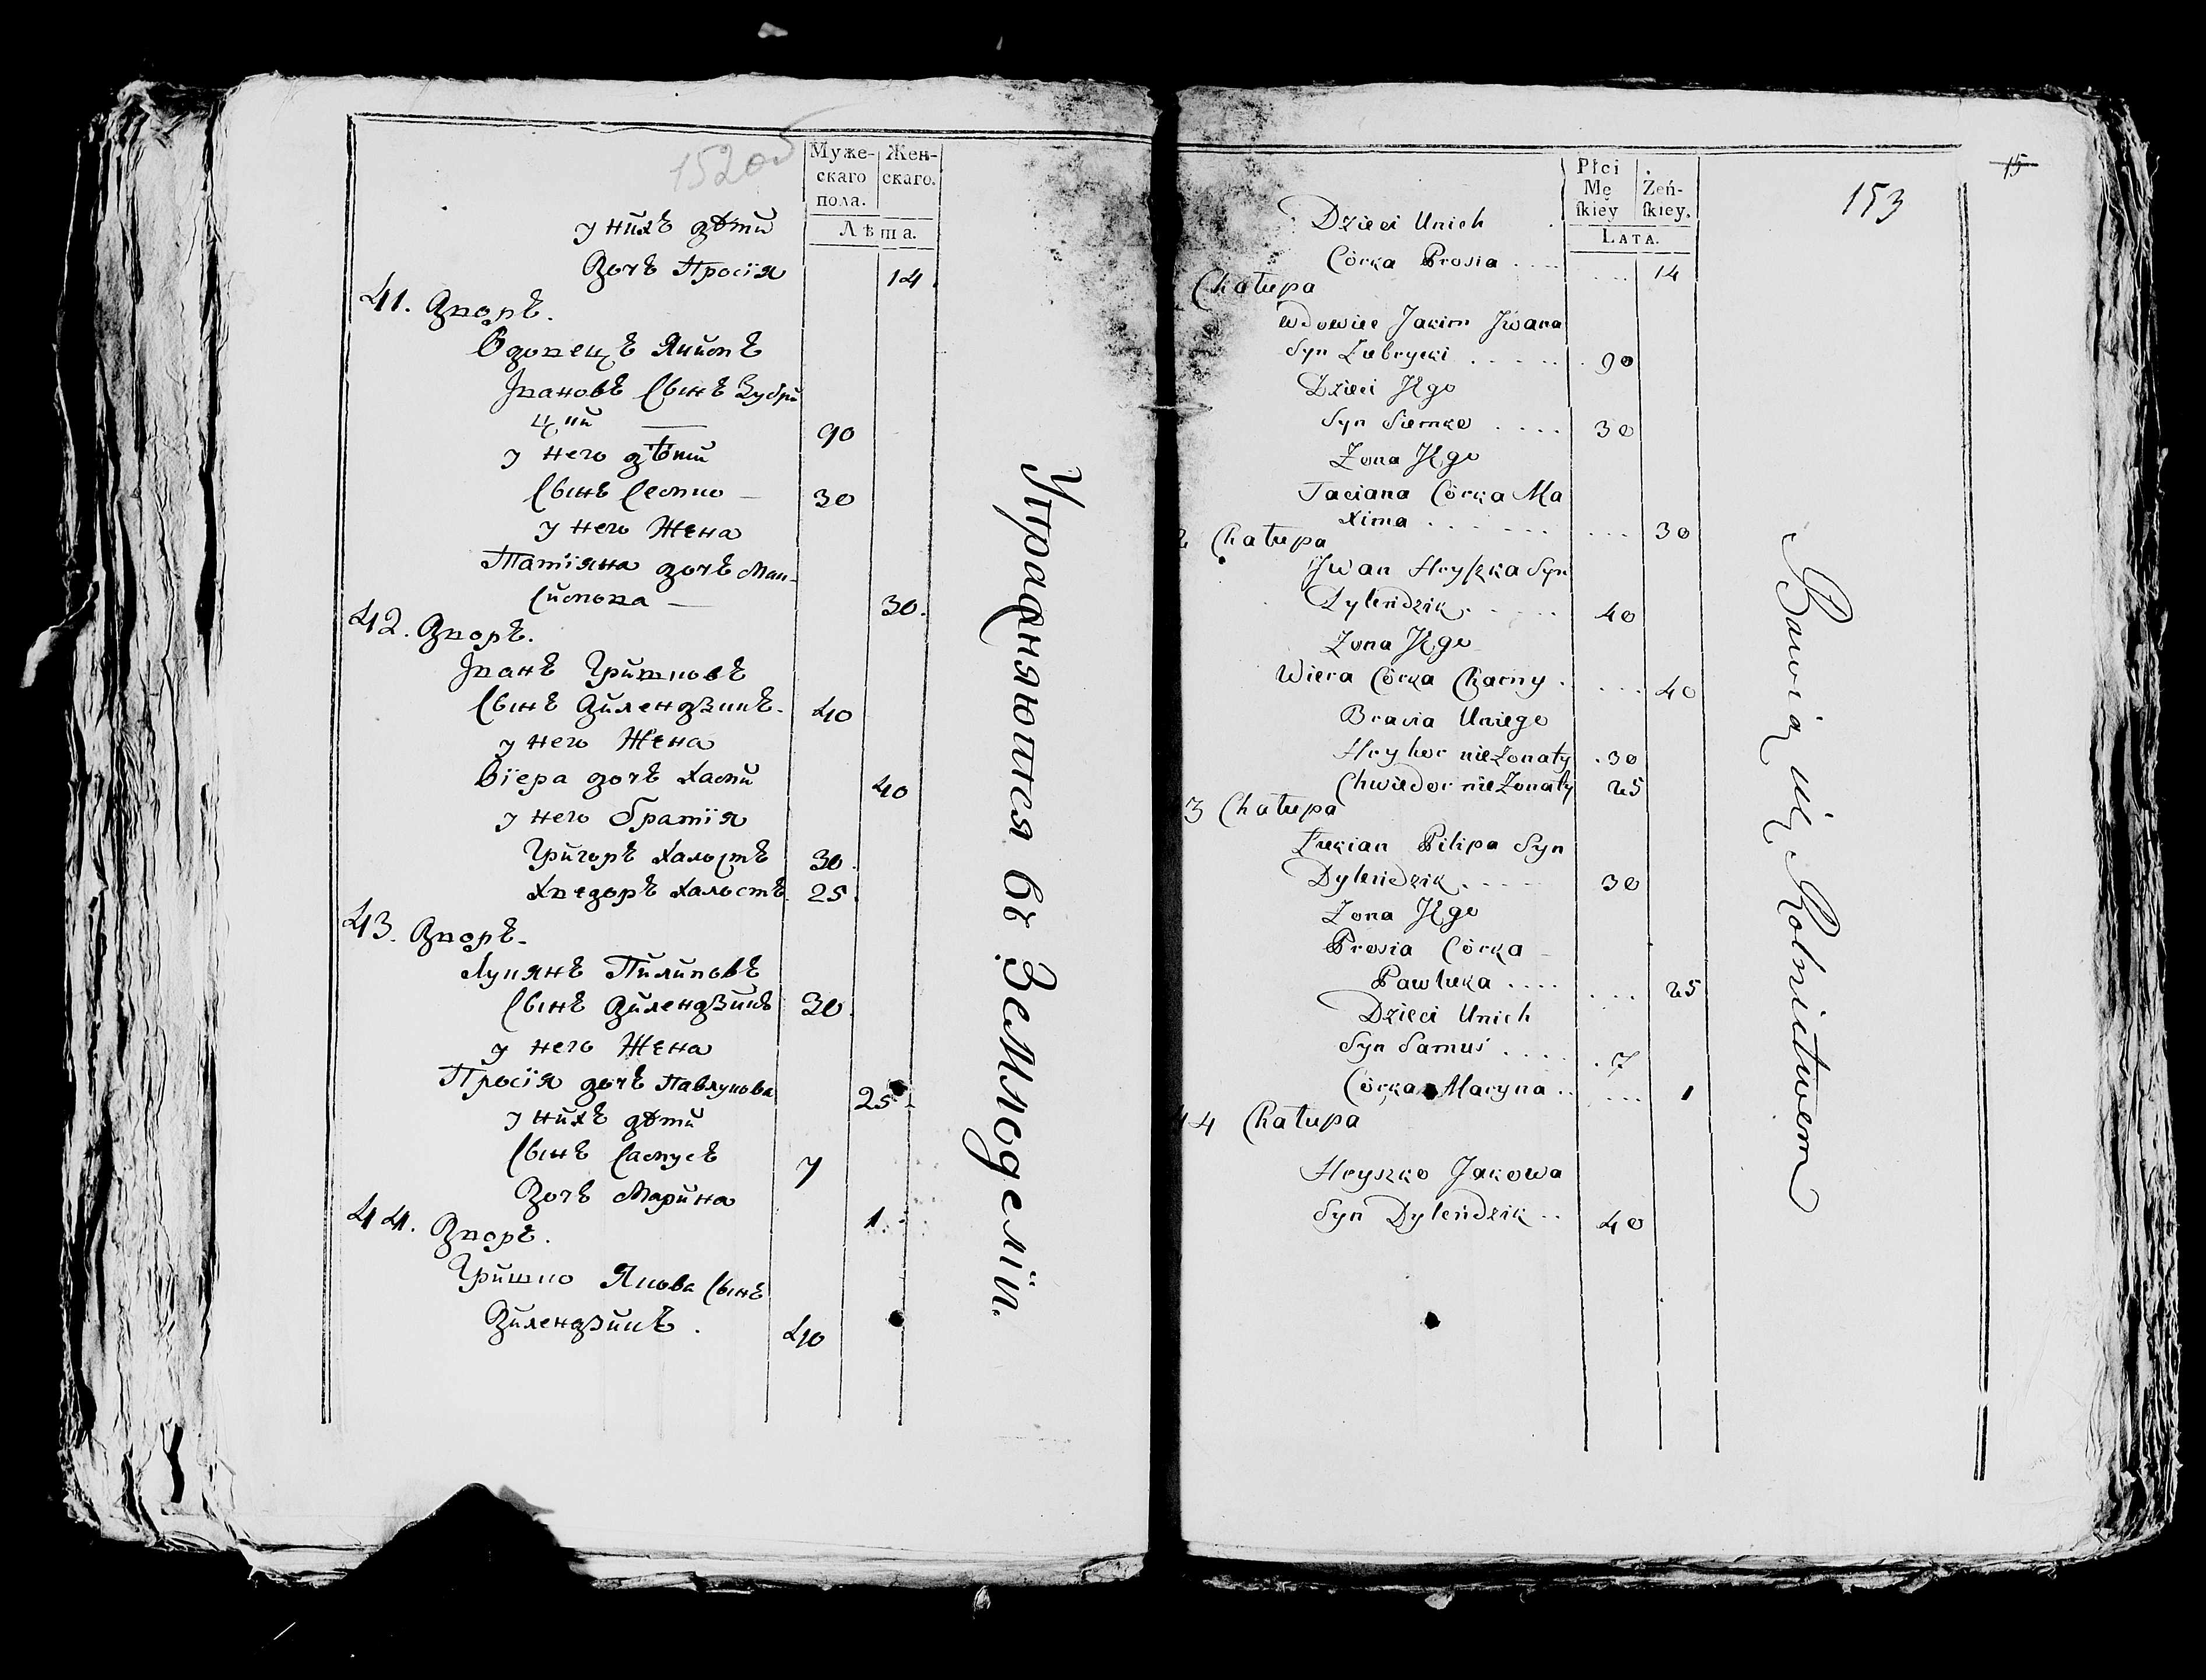 152об
Муже-
скаго
пола.
Жен-
скаго.
Лѣта.
у нихъ дѣти
Дочъ Просія 14
41. Дворъ.
Вдовецъ Якимъ
Івановъ Сынъ Зубри
цки 90
у него дѣти
Сынъ Семко 30
у него Жена
Татіяна дочъ Мак-
Симова 30.
42. Дворъ.
Іванъ Гришковъ
Сынъ Дилендзикъ. 40
у него Жена
Віера дочъ 40
у него братія
Григоръ Халостъ 30.
Хведоръ Халостъ. 25.
43. Дворъ.
Лукянъ Пилиповъ
Сынъ Дилендзикъ 30.
у него Жена
Просія дочъ Павлукова 25.
у нихъ дѣти
Сынъ Самусъ 7
Дочъ Марина 1.
44. Дворъ.
Гришко Якова Сынъ
Дилендзикъ. 40
Упражняются въ Земледеліи.
15
153
Płci
Mę
ſkiey
Żeń-
ſkiey.
LATA.
Dzieci Unich
Córka Prosia .... .... 14
Chałupa
Wdowiec Jakim Jwana
Syn Zubrycki ..... . 90
Dzieci Jego
Syn Siemko .... 30
Zona Jego
Taciana Córka Ma
xima ...... ... 30
2 Chałupa
Jwan Hryſzka Syn
Dylendzik ..... 40
Zona Jego
Wiera Córka . ... 40
Bracia Uniego
Hryhor nie Zonaty . 30
Chwiedor nie Zonaty 25
3 Chałupa
Łukian Pilipa Syn
Dylendzik ..... 30
Zona Jego
Prosia Córka
Pawluka .... ... 25
Dzieci Unich
Syn Samuś .... . 7
Córka Maryna .. ... 1
44 Chałupa
Hryszko Jakowa
Syn Dylendzik .. 40
Bawią się Rolnictwem